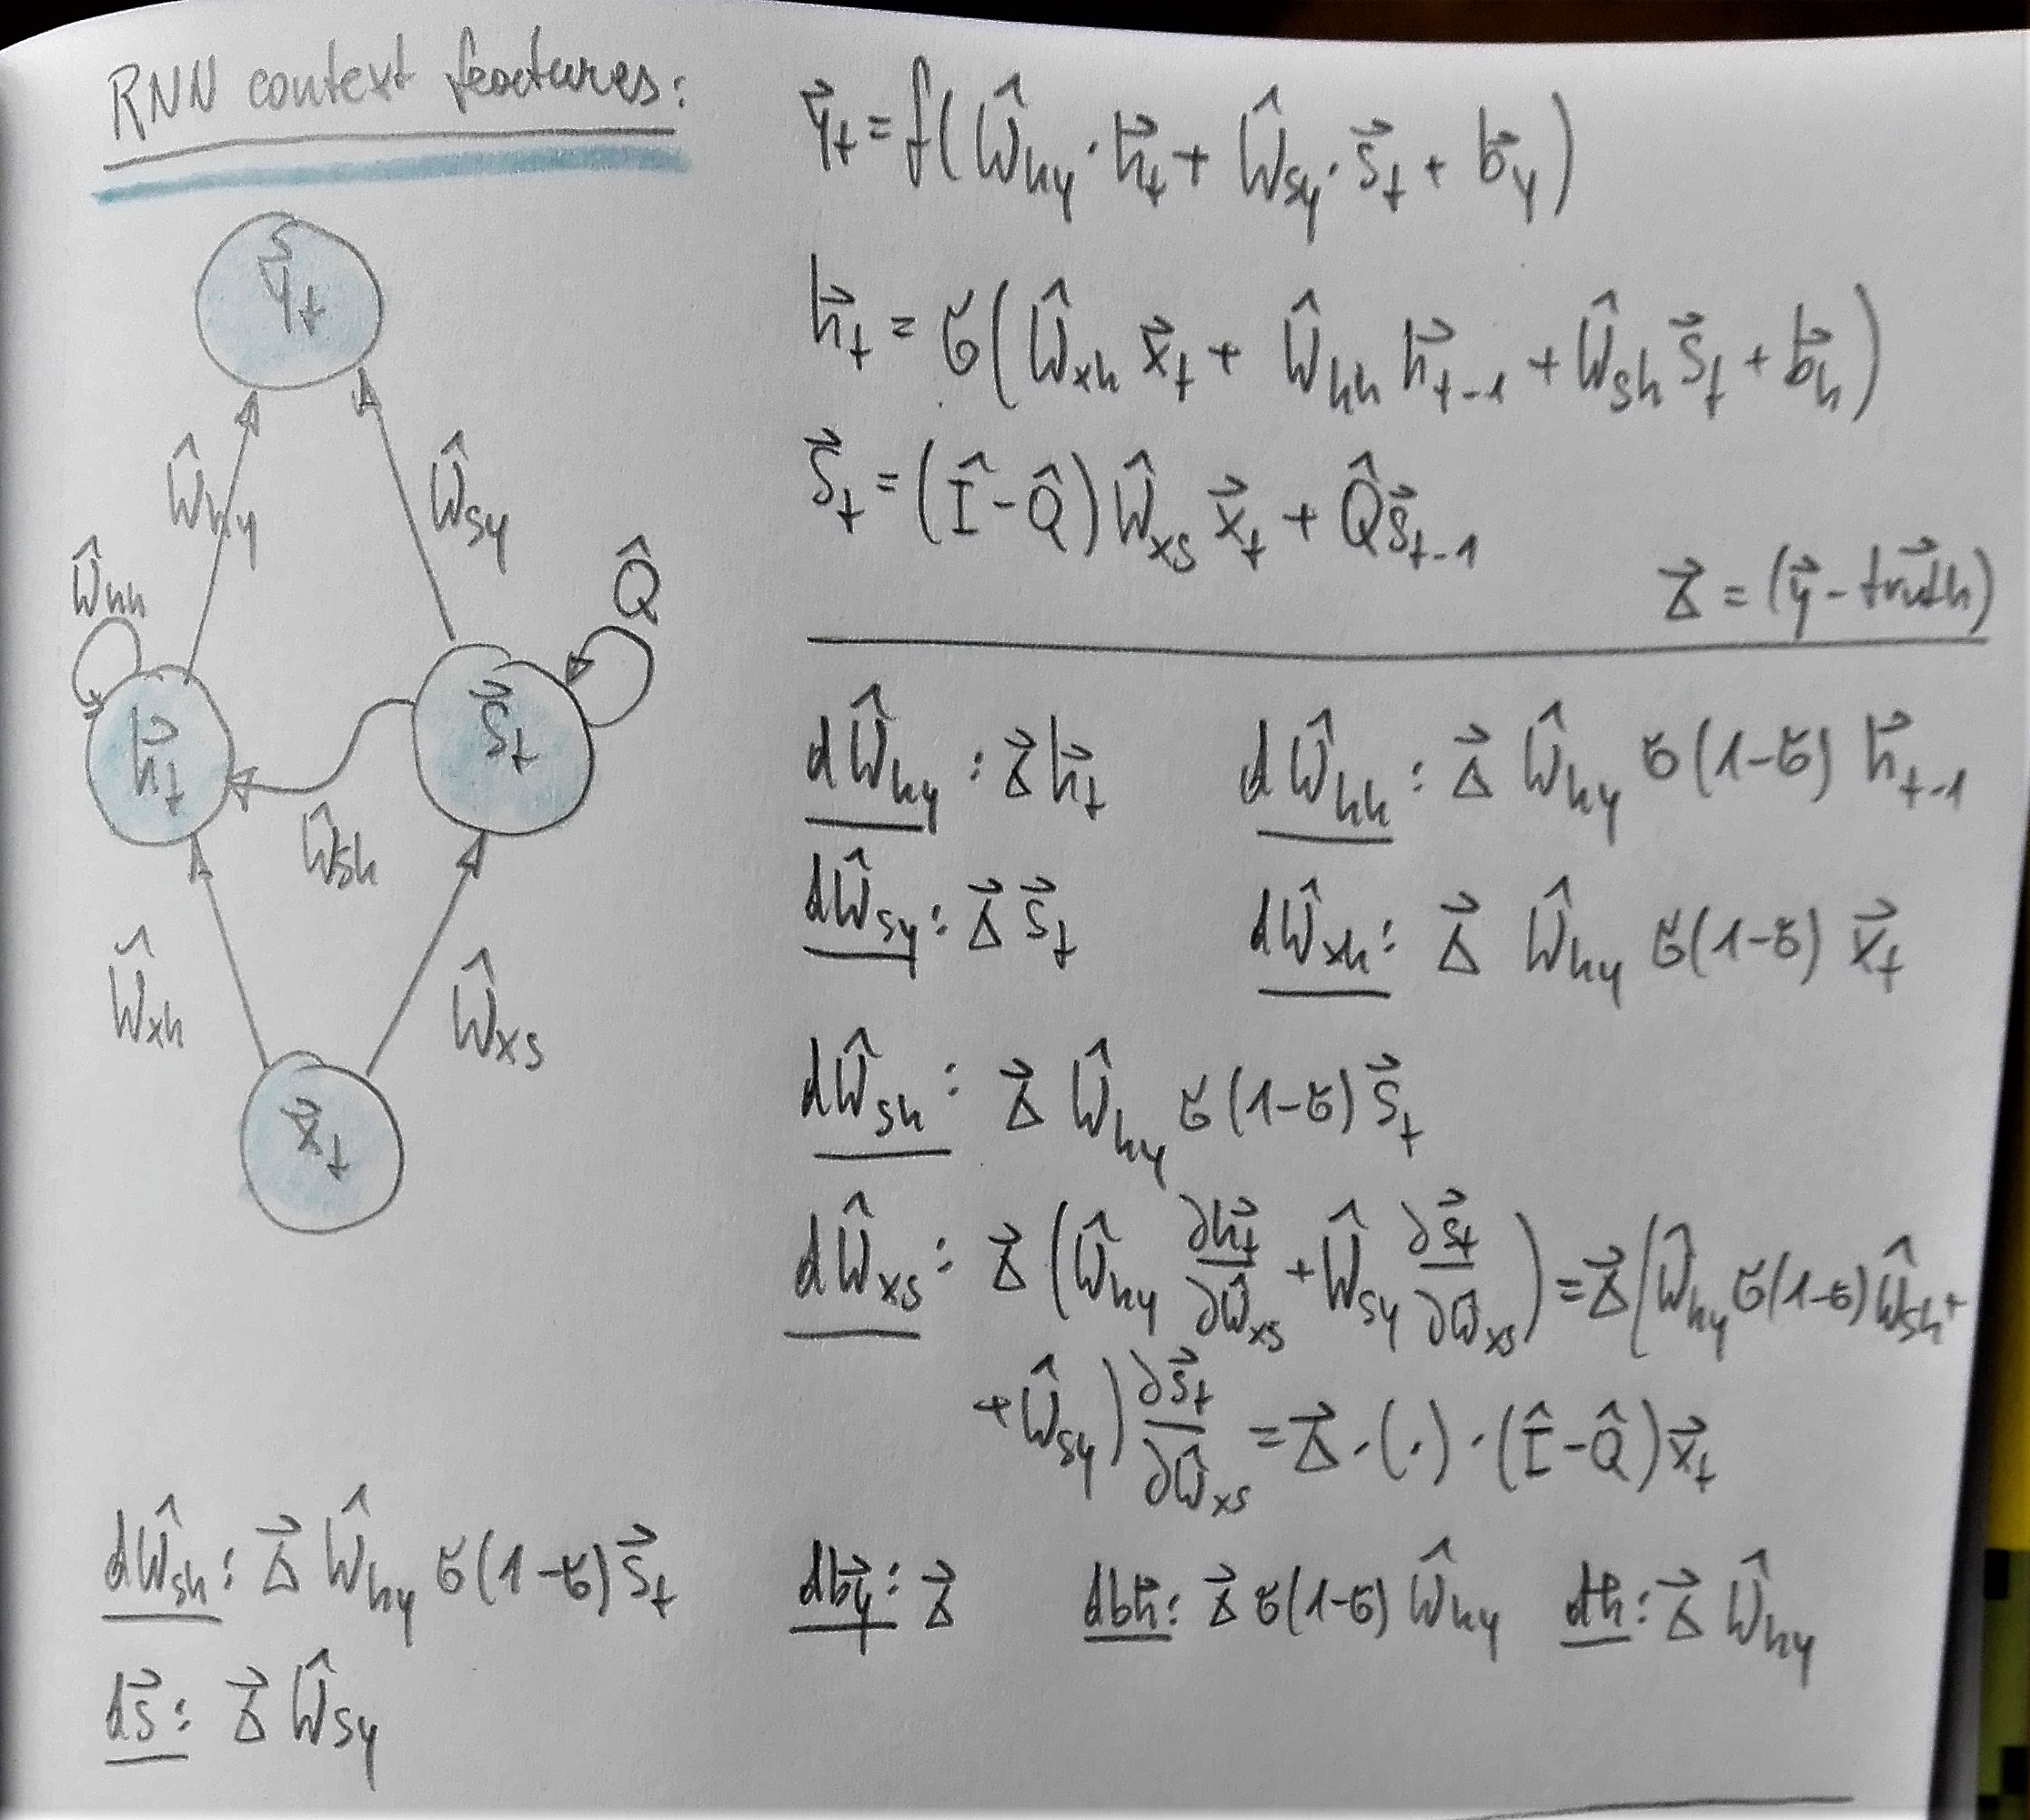 RNN context features:
y⃗_t
Ŵ_hy
Ŵ_sy
Ŵ_hh
Q̂
h⃗_t
s⃗_t
Ŵ_sh
Ŵ_xh
Ŵ_xs
x⃗_t
y⃗_t = f(Ŵ_hy · h⃗_t + Ŵ_sy · s⃗_t + b⃗_y)
h⃗_t = σ(Ŵ_xh x⃗_t + Ŵ_hh h⃗_t-1 + Ŵ_sh s⃗_t + b⃗_h)
s⃗_t = (Î - Q̂) Ŵ_xs x⃗_t + Q̂ s⃗_t-1
Δ⃗ = (y⃗ - truth⃗)
dŴ_hy : Δ⃗ h⃗_t dŴ_hh : Δ⃗ Ŵ_hy σ(1-σ) h⃗_t-1
dŴ_sy : Δ⃗ s⃗_t dŴ_xh : Δ⃗ Ŵ_hy σ(1-σ) x⃗_t
dŴ_sh : Δ⃗ Ŵ_hy σ(1-σ) s⃗_t
dŴ_xs : Δ⃗ (Ŵ_hy ∂h⃗_t/∂Ŵ_xs + Ŵ_sy ∂s⃗_t/∂Ŵ_xs) = Δ⃗ (Ŵ_hy σ(1-σ) Ŵ_sh +
+ Ŵ_sy) ∂s⃗_t/∂Ŵ_xs = Δ⃗ · (·) · (Î - Q̂) x⃗_t
dŴ_sh : Δ⃗ Ŵ_hy σ(1-σ) s⃗_t
ds⃗ : Δ⃗ Ŵ_sy
db⃗_y : Δ⃗ db⃗_h : Δ⃗ σ(1-σ) Ŵ_hy dh⃗ : Δ⃗ Ŵ_hy